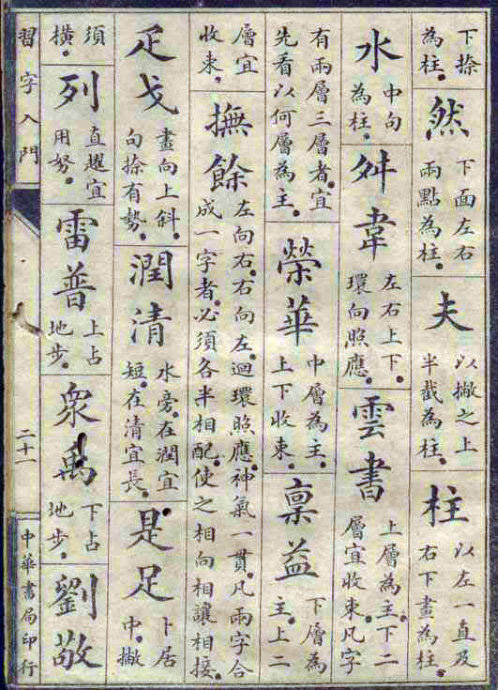 下捺
為柱。
然
下面左右
兩點為柱。
夫
以撇之上
半截為柱。
柱
以左一直及
右下畫為柱。
水
中句
為柱。
舛韋
左右上下。
環向照應。
雲書
上層為主。下二
層宜收束。凡字
有兩層三層者。宜
先看以何層為主。
榮華
中層為主。
上下收束。
稟益
下層為
主。上二
層宜
收束。
撫餘
左向右。右向左。迴環照應。神氣一貫。凡兩字合
成一字者。必須各半相配。使之相向相讓相接。
疋戈
畫向上斜。
句捺有勢。
潤清
水旁。在潤宜
短。在清宜長。
是足
卜居
中。撇
須
橫。
列
直趯宜
用努。
雷普
上占
地步。
衆禹
下占
地步。
劉敬
習字入門
二十一
中華書局印行